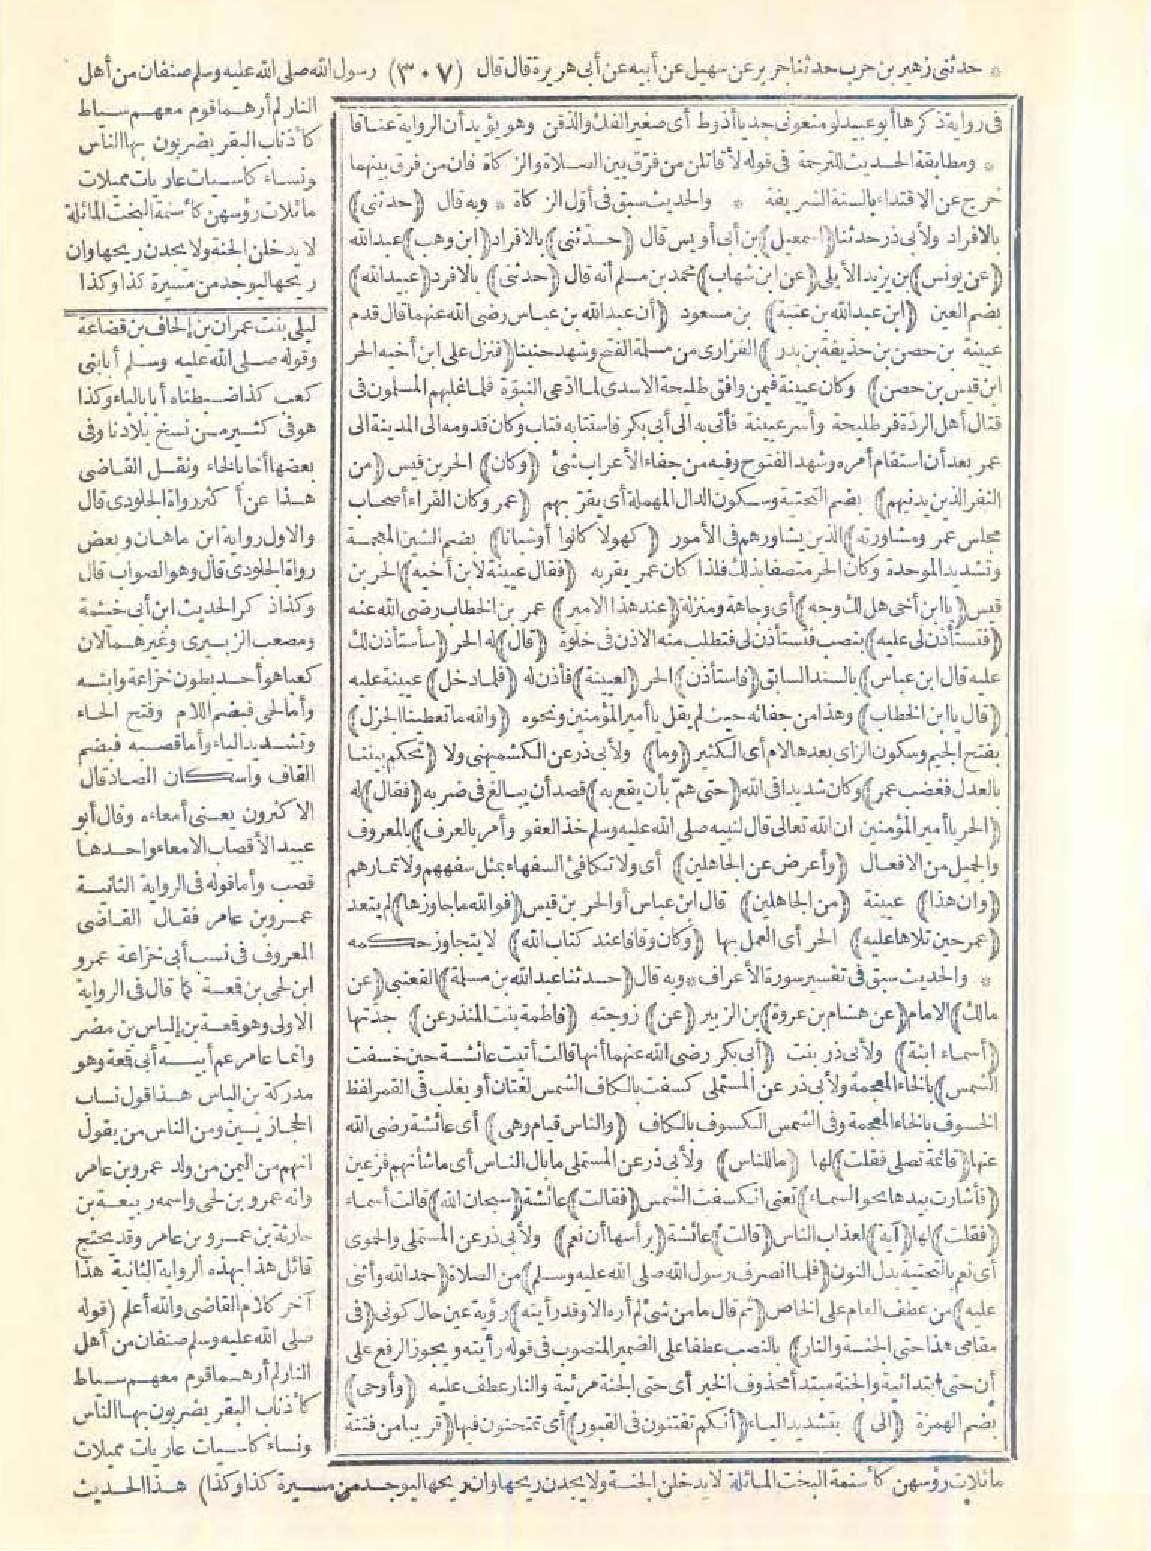 * حدثنى زهير بن حرب حدثنا جرير عن سهيل عن أبيه عن أبى هريرة قال قال (٣٠٧) رسول الله صلى الله عليه وسلم صنفان من أهل
النار لم أرهما قوم معهم سياط
كأذناب البقر يضربون بها الناس
ونساء كاسيات عاريات مميلات
مائلات رؤسهن كأسنمة البخت المائلة
لا يدخلن الجنة ولا يجدن ريحها وان
ريحها ليوجد من مسيرة كذا وكذا
ليلى بنت عمران بن إلحاف بن قضاعة
وقوله صلى الله عليه وسلم أبا بنى
كعب كذا ضبطناه أبا بالباء وكذا
هو فى كثير من نسخ بلادنا وفى
بعضها أخا بالخاء ونقل القاضى
هذا عن أكثر رواة الجلودى قال
والاول رواية ابن ماهان وبعض
رواة الجلودى قال وهو الصواب قال
وكذا ذكر الحديث ابن أبى خيثمة
ومصعب الزبيرى وغيرهما لان
كعبا هو أحد بطون خزاعة وابنه
وأما لحى فبضم اللام وفتح الحاء
وتشديد الياء وأما قصبه فبضم
القاف واسكان الصاد قال
الاكثرون يعنى أمعاءه وقال أبو
عبيد الأقصاب الامعاء واحدها
قصب وأما قوله فى الرواية الثانية
عمرو بن عامر فقال القاضى
المعروف فى نسب أبى خزاعة عمرو
ابن لحى بن قمعة كما قال فى الرواية
الاولى وهو قمعة بن إلياس بن مضر
وانما عامر عم أبيه أبى قمعة وهو
مدركة بن الياس هذا قول نساب
الحجازيين ومن الناس من يقول
انهم من اليمن من ولد عمرو بن عامر
وانه عمرو بن لحى واسمه ربيعة بن
حارثة بن عمرو بن عامر وقد يحتج
قائل هذا بهذه الرواية الثانية هذا
آخر كلام القاضى والله أعلم (قوله
صلى الله عليه وسلم صنفان من أهل
النار لم أرهما قوم معهم سياط
كأذناب البقر يضربون بها الناس
ونساء كاسيات عاريات مميلات
فى رواية ذكرها أبو عبيد لو منعونى جديا أذوط أى صغير الفك والذقن وهو يؤيد أن الرواية عناقا
* ومطابقة الحديث للترجمة فى قوله لأقاتلن من فرق بين الصلاة والزكاة فان من فرق بينهما
خرج عن الاقتداء بالسنة الشريفة * والحديث سبق فى أول الزكاة * وبه قال (حدثنى)
بالافراد ولأبى ذر حدثنا (اسمعيل) بن أبى أويس قال (حدثنى) بالافراد (ابن وهب) عبد الله
(عن يونس) بن يزيد الأيلى (عن ابن شهاب) محمد بن مسلم أنه قال (حدثنى) بالافرد (عبيد الله)
بضم العين (ابن عبد الله بن عتبة) بن مسعود (أن عبد الله بن عباس رضى الله عنهما قال قدم
عيينة بن حصن بن حذيفة بن بدر) الفزارى من مسلمة الفتح وشهد حنينا (فنزل على ابن أخيه الحر
ابن قيس بن حصن) وكان عيينة فيمن وافق طليحة الاسدى لما ادعى النبوة فلما غلبهم المسلمون فى
قتال أهل الردة فر طليحة وأسر عيينة فأتى به الى أبى بكر فاستتابه فتاب وكان قدومه الى المدينة الى
عمر بعد أن استقام أمره وشهد الفتوح وفيه من جفاء الأعراب شئ (وكان) الحر بن قيس (من
النفر الذين يدنيهم) بضم التحتية وسكون الدال المهملة أى يقربهم (عمر وكان القراء أصحاب
مجلس عمر ومشاورته) الذين يشاورهم فى الأمور (كهولا كانوا أو شبانا) بضم الشين المعجمة
وتشديد الموحدة وكان الحر متصفا بذلك فلذا كان عمر يقربه (فقال عيينة لابن أخيه) الحر بن
قيس (يا ابن أخى هل لك وجه) أى وجاهة ومنزلة (عند هذا الامير) عمر بن الخطاب رضى الله عنه
(فتستأذن لى عليه) بنصب فتستأذن لى فتطلب منه الاذن فى خلوة (قال) له الحر (سأستأذن لك
عليه قال ابن عباس) بالسند السابق (فاستأذن) الحر (لعيينة) فأذن له (فلما دخل) عيينة عليه
(قال يا ابن الخطاب) وهذا من جفائه حيث لم يقل يا أمير المؤمنين ونحوه (والله ما تعطينا الجزل)
بفتح الجيم وسكون الزاى بعدها لام أى الكثير (وما) ولأبى ذر عن الكشميهنى ولا (تحكم بيننا
بالعدل فغضب عمر) وكان شديدا فى الله (حتى هم بأن يقع به) قصد أن يبالغ فى ضربه (فقال) له
(الحر يا أمير المؤمنين ان الله تعالى قال لنبيه صلى الله عليه وسلم خذ العفو وأمر بالعرف) بالمعروف
والجميل من الافعال (وأعرض عن الجاهلين) أى ولا تكافئ السفهاء بمثل سفههم ولا تمارهم
(وان هذا) عيينة (من الجاهلين) قال ابن عباس أو الحر بن قيس (فوالله ما جاوزها) لم يتعد
(عمر حين تلاها عليه) الحر أى العمل بها (وكان وقافا عند كتاب الله) لا يتجاوز حكمه
* والحديث سبق فى تفسير سورة الأعراف * وبه قال (حدثنا عبد الله بن مسلمة) القعنبى (عن
مالك) الامام (عن هشام بن عروة) بن الزبير (عن) زوجته (فاطمة بنت المنذر عن) جدتها
(أسماء ابنة) ولأبى ذر بنت (أبى بكر رضى الله عنهما أنها قالت أتيت عائشة حين خسفت
الشمس) بالخاء المعجمة ولأبى ذر عن المستملى كسفت بالكاف الشمس لغتان أو يغلب فى القمر لفظ
الخسوف بالخاء المعجمة وفى الشمس الكسوف بالكاف (والناس قيام وهى) أى عائشة رضى الله
عنها (قائمة تصلى فقلت) لها (ما للناس) ولأبى ذر عن المستملى ما بال الناس أى ما شأنهم فزعين
(فأشارت بيدها نحو السماء) تعنى انكسفت الشمس (فقالت) عائشة (سبحان الله) قالت أسماء
(فقلت) لها (آية) لعذاب الناس (قالت) عائشة (برأسها أن نعم) ولأبى ذر عن المستملى والحموى
أى نعم بالتحتية بدل النون (فلما انصرف رسول الله صلى الله عليه وسلم) من الصلاة (حمد الله وأثنى
عليه) من عطف العام على الخاص (ثم قال ما من شئ لم أره الا وقد رأيته) رؤية عين حال كونى (فى
مقامى هذا حتى الجنة والنار) بالنصب عطفا على الضمير المنصوب فى قوله رأيته ويجوز الرفع على
أن حتى ابتدائية والجنة مبتدأ محذوف الخبر أى حتى الجنة مرئية والنار عطف عليه (وأوحى)
بضم الهمزة (الى) بتشديد الياء (أنكم تفتنون فى القبور) أى تمتحنون فيها (قريبا من فتنة
مائلات رؤسهن كأسنمة البخت المائلة لا يدخلن الجنة ولا يجدن ريحها وان ريحها ليوجد من مسيرة كذا وكذا) هذا الحديث